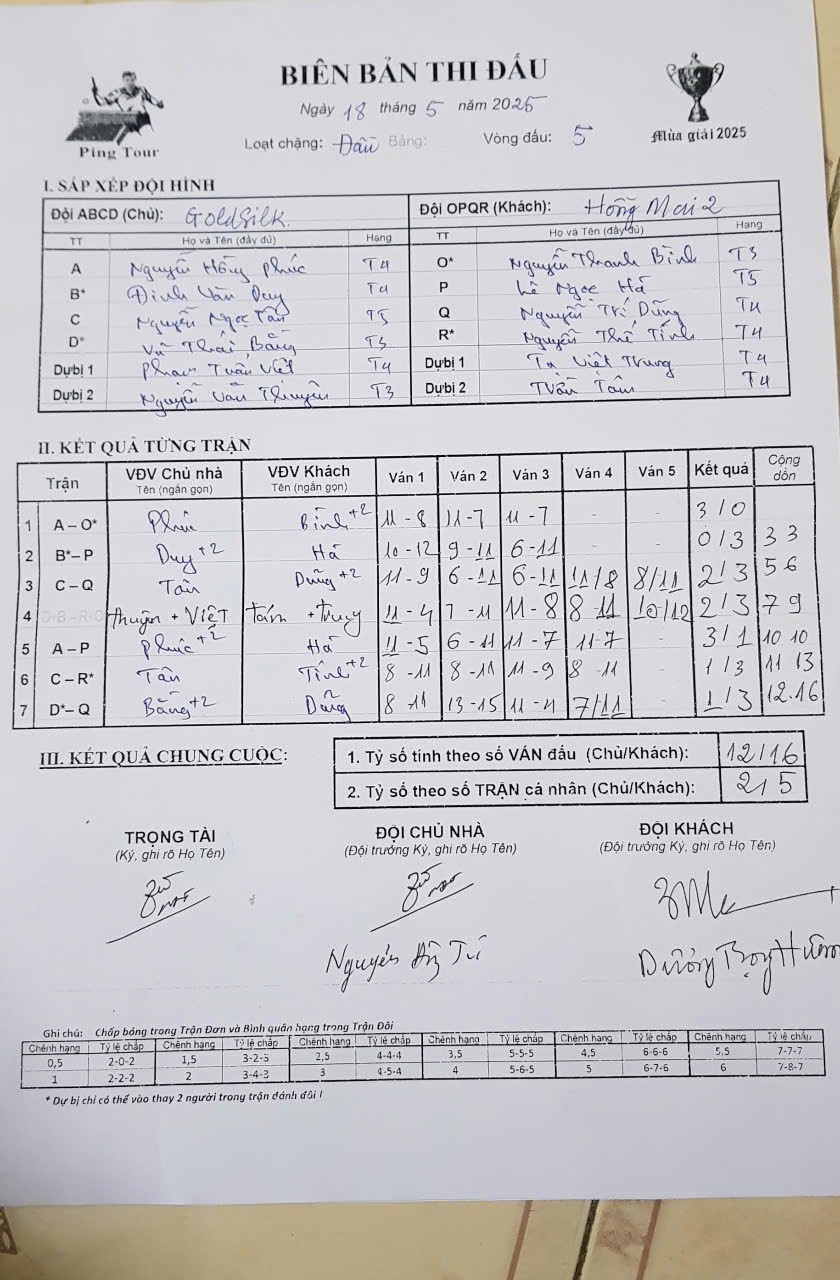 BIÊN BẢN THI ĐẤU
Ngày 18 tháng 5 năm 2025
Ping Tour
Loạt chặng: Đầu Bảng: Vòng đấu: 5
Mùa giải 2025
I. SẮP XẾP ĐỘI HÌNH
Đội ABCD (Chủ): GoldSilk. Đội OPQR (Khách): Hồng Mai 2
TT Họ và Tên (đầy đủ) Hạng TT Họ và Tên (đầy đủ) Hạng
A Nguyễn Hồng Phúc T4 O* Nguyễn Thanh Bình T3
B* Đinh Văn Duy T4 P Lê Ngọc Hà T5
C Nguyễn Ngọc Tân T5 Q Nguyễn Trí Dũng T4
D* Vũ Thái Bằng T3 R* Nguyễn Thế Tính T4
Dự bị 1 Phan Tuấn Việt T4 Dự bị 1 Tạ Việt Trung T4
Dự bị 2 Nguyễn Văn Thuyên T3 Dự bị 2 Trần Tám T4
II. KẾT QUẢ TỪNG TRẬN
Trận VĐV Chủ nhà Tên (ngắn gọn) VĐV Khách Tên (ngắn gọn) Ván 1 Ván 2 Ván 3 Ván 4 Ván 5 Kết quả Cộng dồn
1 A – O* Phúc Bình+2 11 - 8 11 - 7 11 - 7 - - 3 / 0
2 B* – P Duy+2 Hà 10 - 12 9 - 11 6 - 11 - - 0 / 3 3 3
3 C – Q Tân Dũng+2 11 - 9 6 - 11 6 - 11 11 / 8 8 / 11 2 / 3 5 6
4 D-B-R-O Thuyên + Việt Tám + Trung 11 - 4 7 - 11 11 - 8 8 - 11 10 / 12 2 / 3 7 9
5 A – P Phúc+2 Hà 11 - 5 6 - 11 11 - 7 11 - 7 3 / 1 10 10
6 C – R* Tân Tính+2 8 - 11 8 - 11 11 - 9 8 - 11 1 / 3 11 13
7 D* – Q Bằng+2 Dũng 8 - 11 13 - 15 11 - 4 7 / 11 1 / 3 12.16
III. KẾT QUẢ CHUNG CUỘC:
1. Tỷ số tính theo số VÁN đấu (Chủ/Khách): 12 / 16
2. Tỷ số theo số TRẬN cá nhân (Chủ/Khách): 2 / 5
TRỌNG TÀI ĐỘI CHỦ NHÀ ĐỘI KHÁCH
(Ký, ghi rõ Họ Tên) (Đội trưởng Ký, ghi rõ Họ Tên) (Đội trưởng Ký, ghi rõ Họ Tên)
Nguyễn Tú
Dương Trọng
Ghi chú: Chấp bóng trong Trận Đơn và Bình quân hạng trong Trận Đôi
Chênh hạng Tỷ lệ chấp Chênh hạng Tỷ lệ chấp Chênh hạng Tỷ lệ chấp Chênh hạng Tỷ lệ chấp Chênh hạng Tỷ lệ chấp Chênh hạng Tỷ lệ chấp
0,5 2-0-2 1,5 3-2-3 2,5 4-4-4 3,5 5-5-5 4,5 6-6-6 5,5 7-7-7
1 2-2-2 2 3-4-3 3 4-5-4 4 5-6-5 5 6-7-6 6 7-8-7
* Dự bị chỉ có thể vào thay 2 người trong trận đánh đôi !